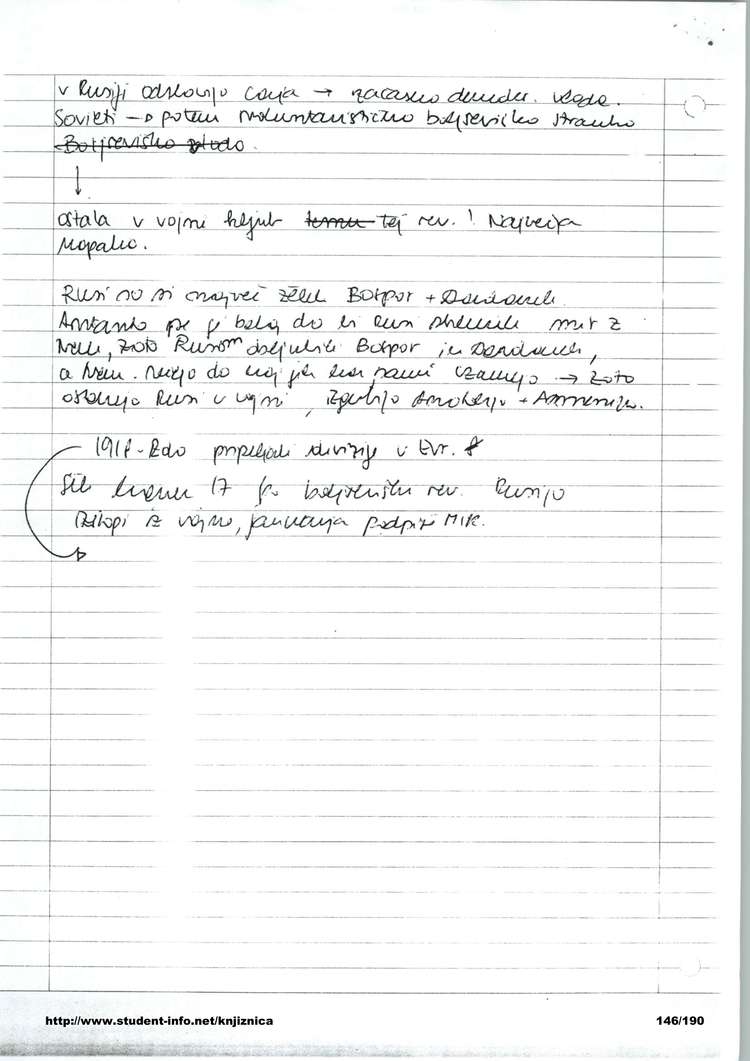 v Rusiji odstavijo carja → začasno demokr. vlada.
Sovjeti → potem voluntaristično boljševiško stranko
Boljševiško vlado.
↓
ostala v vojni kljub temu tej rev.! Največja
napaka.
Rusi so si največ želeli Bospor + Dardanele.
Antanta se je bala, da bi Rusi sklenili mir z
Nem., zato Rusom obljubili Bospor in Dardanele,
a Nem. rečejo da naj jih sami vzamejo → zato
ostanejo Rusi v vojni, izgubijo + Armenijo.
1918 - ZDA pripeljali divizije v Evr.
17 je boljševiška rev. Rusijo
izstopi iz vojne, januarja podpiše MIR.
http://www.student-info.net/knjiznica
146/190